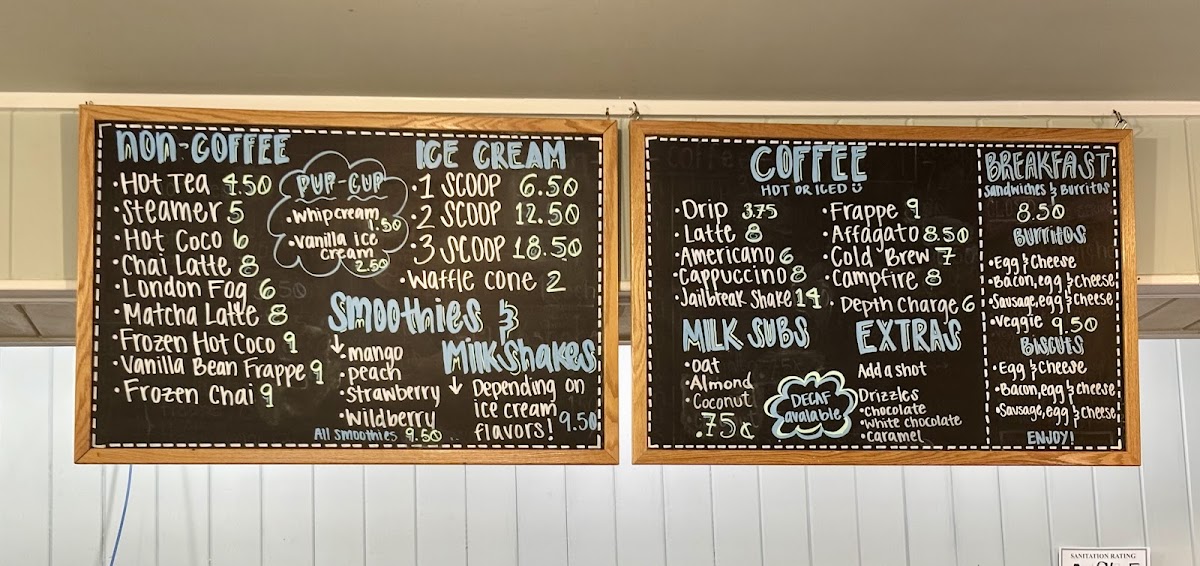 NON-COFFEE
•Hot Tea 4.50
•Steamer 5
•Hot Coco 6
•Chai Latte 8
•London Fog 6
•Matcha Latte 8
•Frozen Hot Coco 9
•Vanilla Bean Frappe 9
•Frozen Chai 9
PUP-CUP
•Whipcream
1.50
•Vanilla ice
cream
2.50
ICE CREAM
•1 SCOOP 6.50
•2 SCOOP 12.50
•3 SCOOP 18.50
•Waffle cone 2
Smoothies &
↓•mango
•peach
•strawberry
•Wildberry
All smoothies 9.50
Milkshakes
↓ Depending on
ice cream
flavors! 9.50
COFFEE
HOT OR ICED
•Drip 3.75
•Latte 8
•Americano 6
•Cappuccino 8
•Jailbreak Shake 14
•Frappe 9
•Affagato 8.50
•Cold Brew 7
•Campfire 8
Depth Charge 6
MILK SUBS
•oat
•Almond
•Coconut
.75¢
DECAF
avaiable
EXTRAS
Add a shot
Drizzles
•Chocolate
•White chocolate
•Caramel
BREAKFAST
Sandwiches & Burritos
8.50
BURRITOS
•Egg & Cheese
•Bacon, egg & cheese
•Sausage, egg & cheese
•Veggie 9.50
BISCUTS
•Egg & Cheese
•Bacon, egg & cheese
•Sausage, egg & cheese
ENJOY!
SANITATION RATING